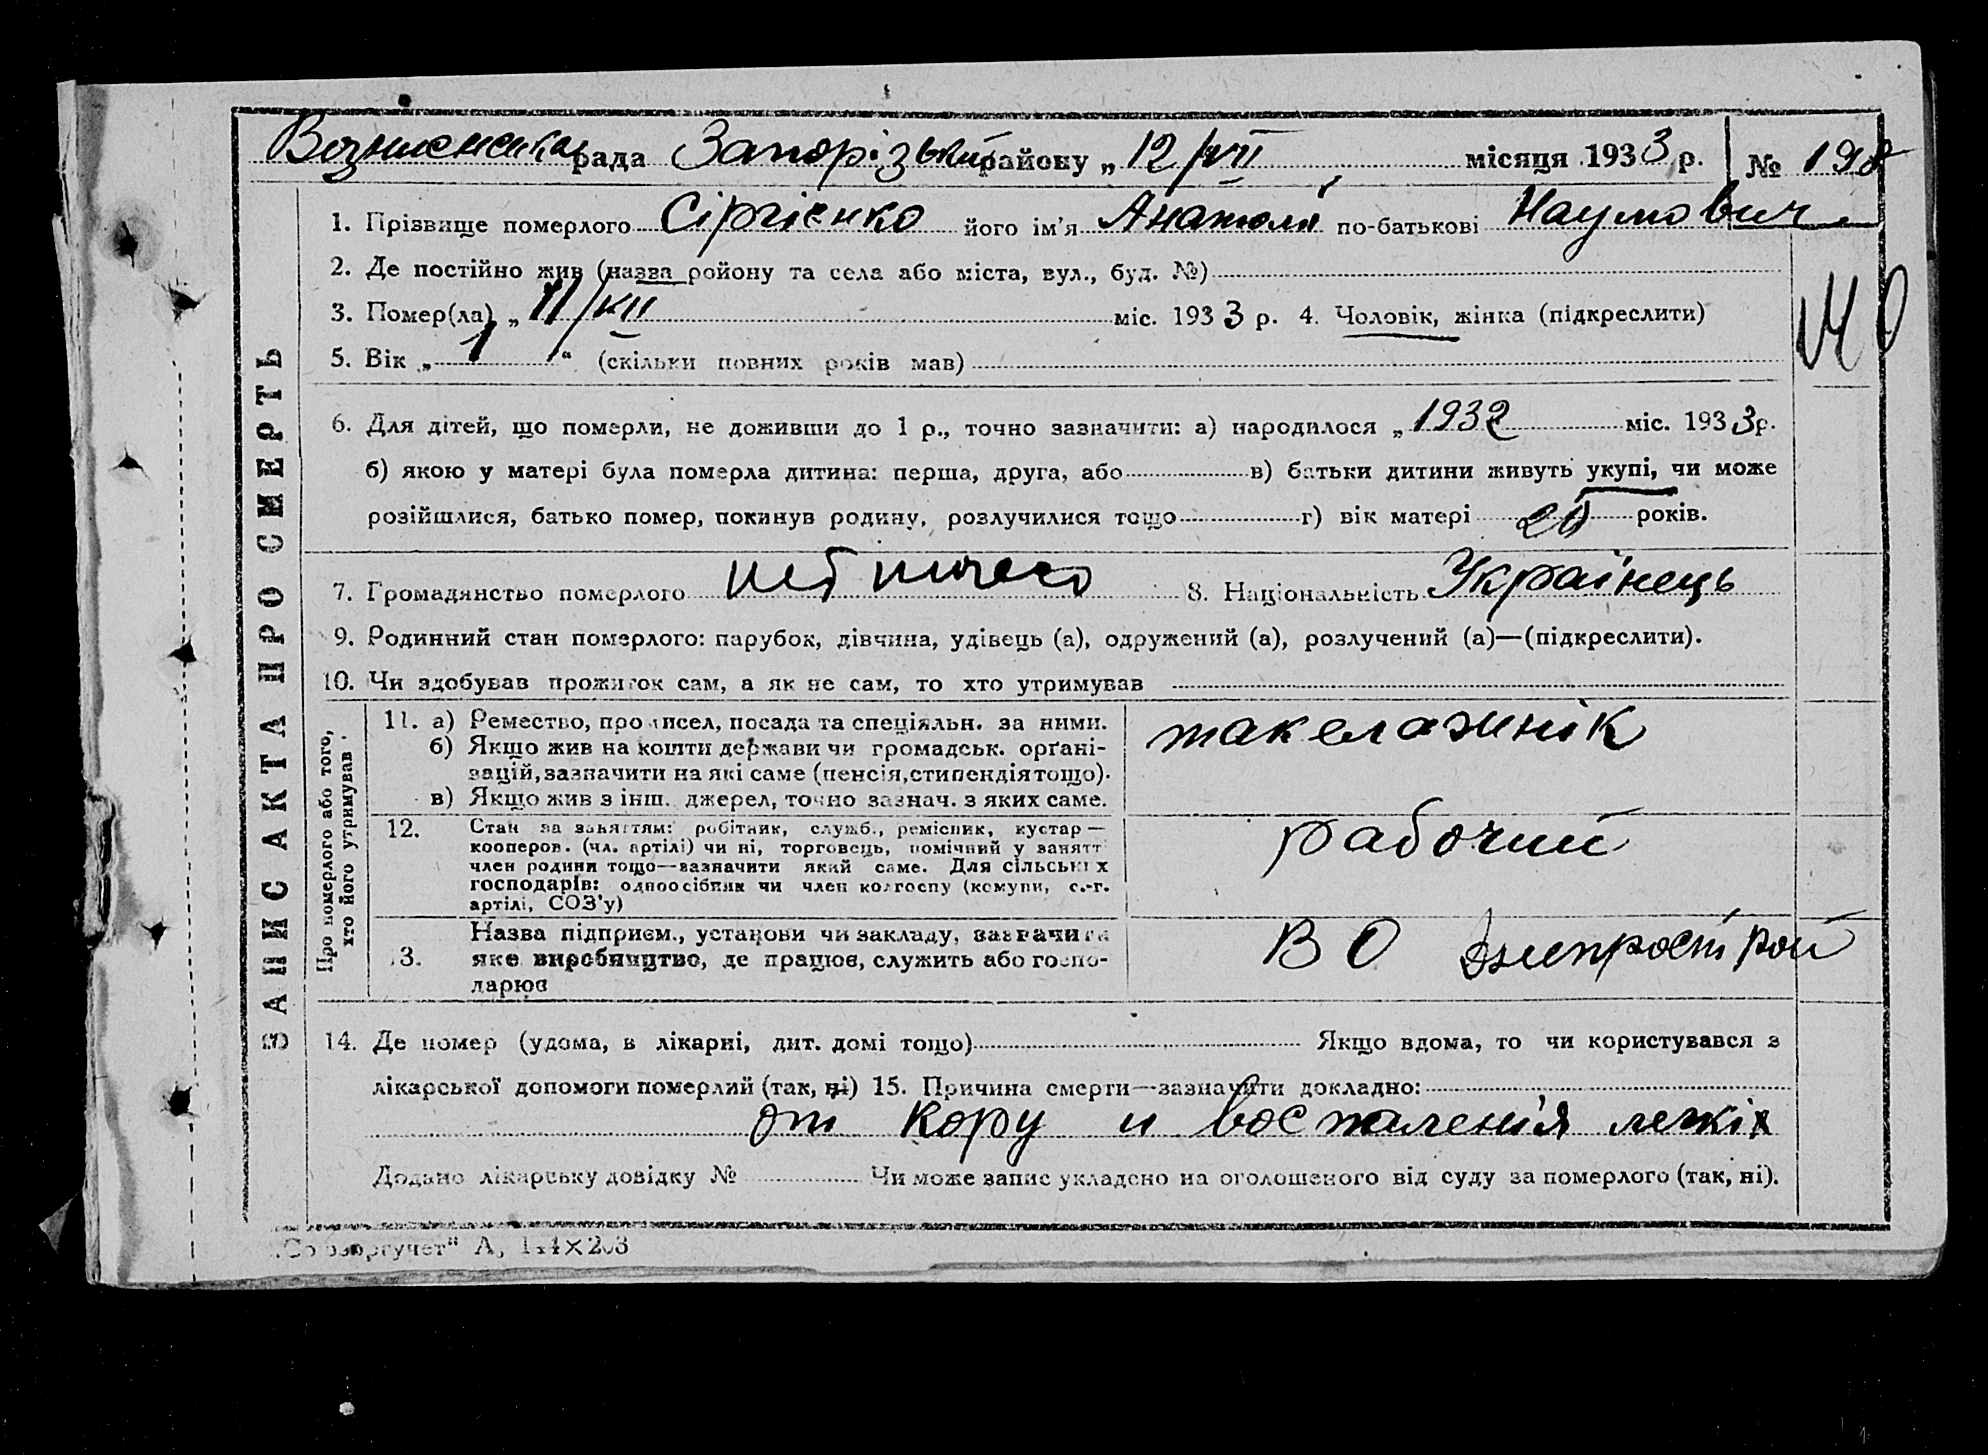 Вознисенська рада Запорізький району „ 12/VII місяця 1933 р. № 198
1. Прізвище померлого Сіргієнко його ім'я Анатолій по-батькові Наумович
2. Де постійно жив (назва ройону та села або міста, вул., буд. №)
3. Помер(ла) „ 11/VII міс. 1933 р. 4. Чоловік, жінка (підкреслити)
5. Вік „ 1 “ (скільки повних років мав)
6. Для дітей, що померли, не доживши до 1 р., точно зазначити: а) народилося „ 1932 міс. 1933 р.
б) якою у матері була померла дитина: перша, друга, або в) батьки дитини живуть укупі, чи може
розійшлися, батько помер, покинув родину, розлучилися тощо г) вік матері 20 років.
7. Громадянство померлого 8. Національність Українець
9. Родинний стан померлого: парубок, дівчина, удівець (а), одружений (а), розлучений (а)—(підкреслити).
10. Чи здобував прожиток сам, а як не сам, то хто утримував
ЗАПИС АКТА ПРО СМЕРТЬ
Про померлого або того, хто його утримував
11. а) Ремество, промисел, посада та спеціяльн. за ними.
б) Якщо жив на кошти держави чи громадськ. орґані-
зацій, зазначити на які саме (пенсія, стипендія тощо).
в) Якщо жив з інш. джерел, точно зазнач. з яких саме.
такелажнік
12. Стан за заняттям: робітник, служб., ремісник, кустар—
кооперов. (чл. артілі) чи ні, торговець, помічний у занятт
член родини тощо—зазначити який саме. Для сільських
господарів: одноосібник чи член колгоспу (комуни, с.-г.
артілі, СОЗ'у)
рабочий
13. Назва підприєм., установи чи закладу, зазначити
яке виробництво, де працює, служить або госпо-
дарює
ВО Днипрострой
14. Де помер (удома, в лікарні, дит. домі тощо) Якщо вдома, то чи користувався з
лікарської допомоги померлий (так, ні) 15. Причина смерти—зазначити докладно:
от кору и воспаления легкіх
Додано лікарську довідку № Чи може запис укладено на оголошеного від суду за померлого (так, ні).
„Союзоргучет“ А, 144×203